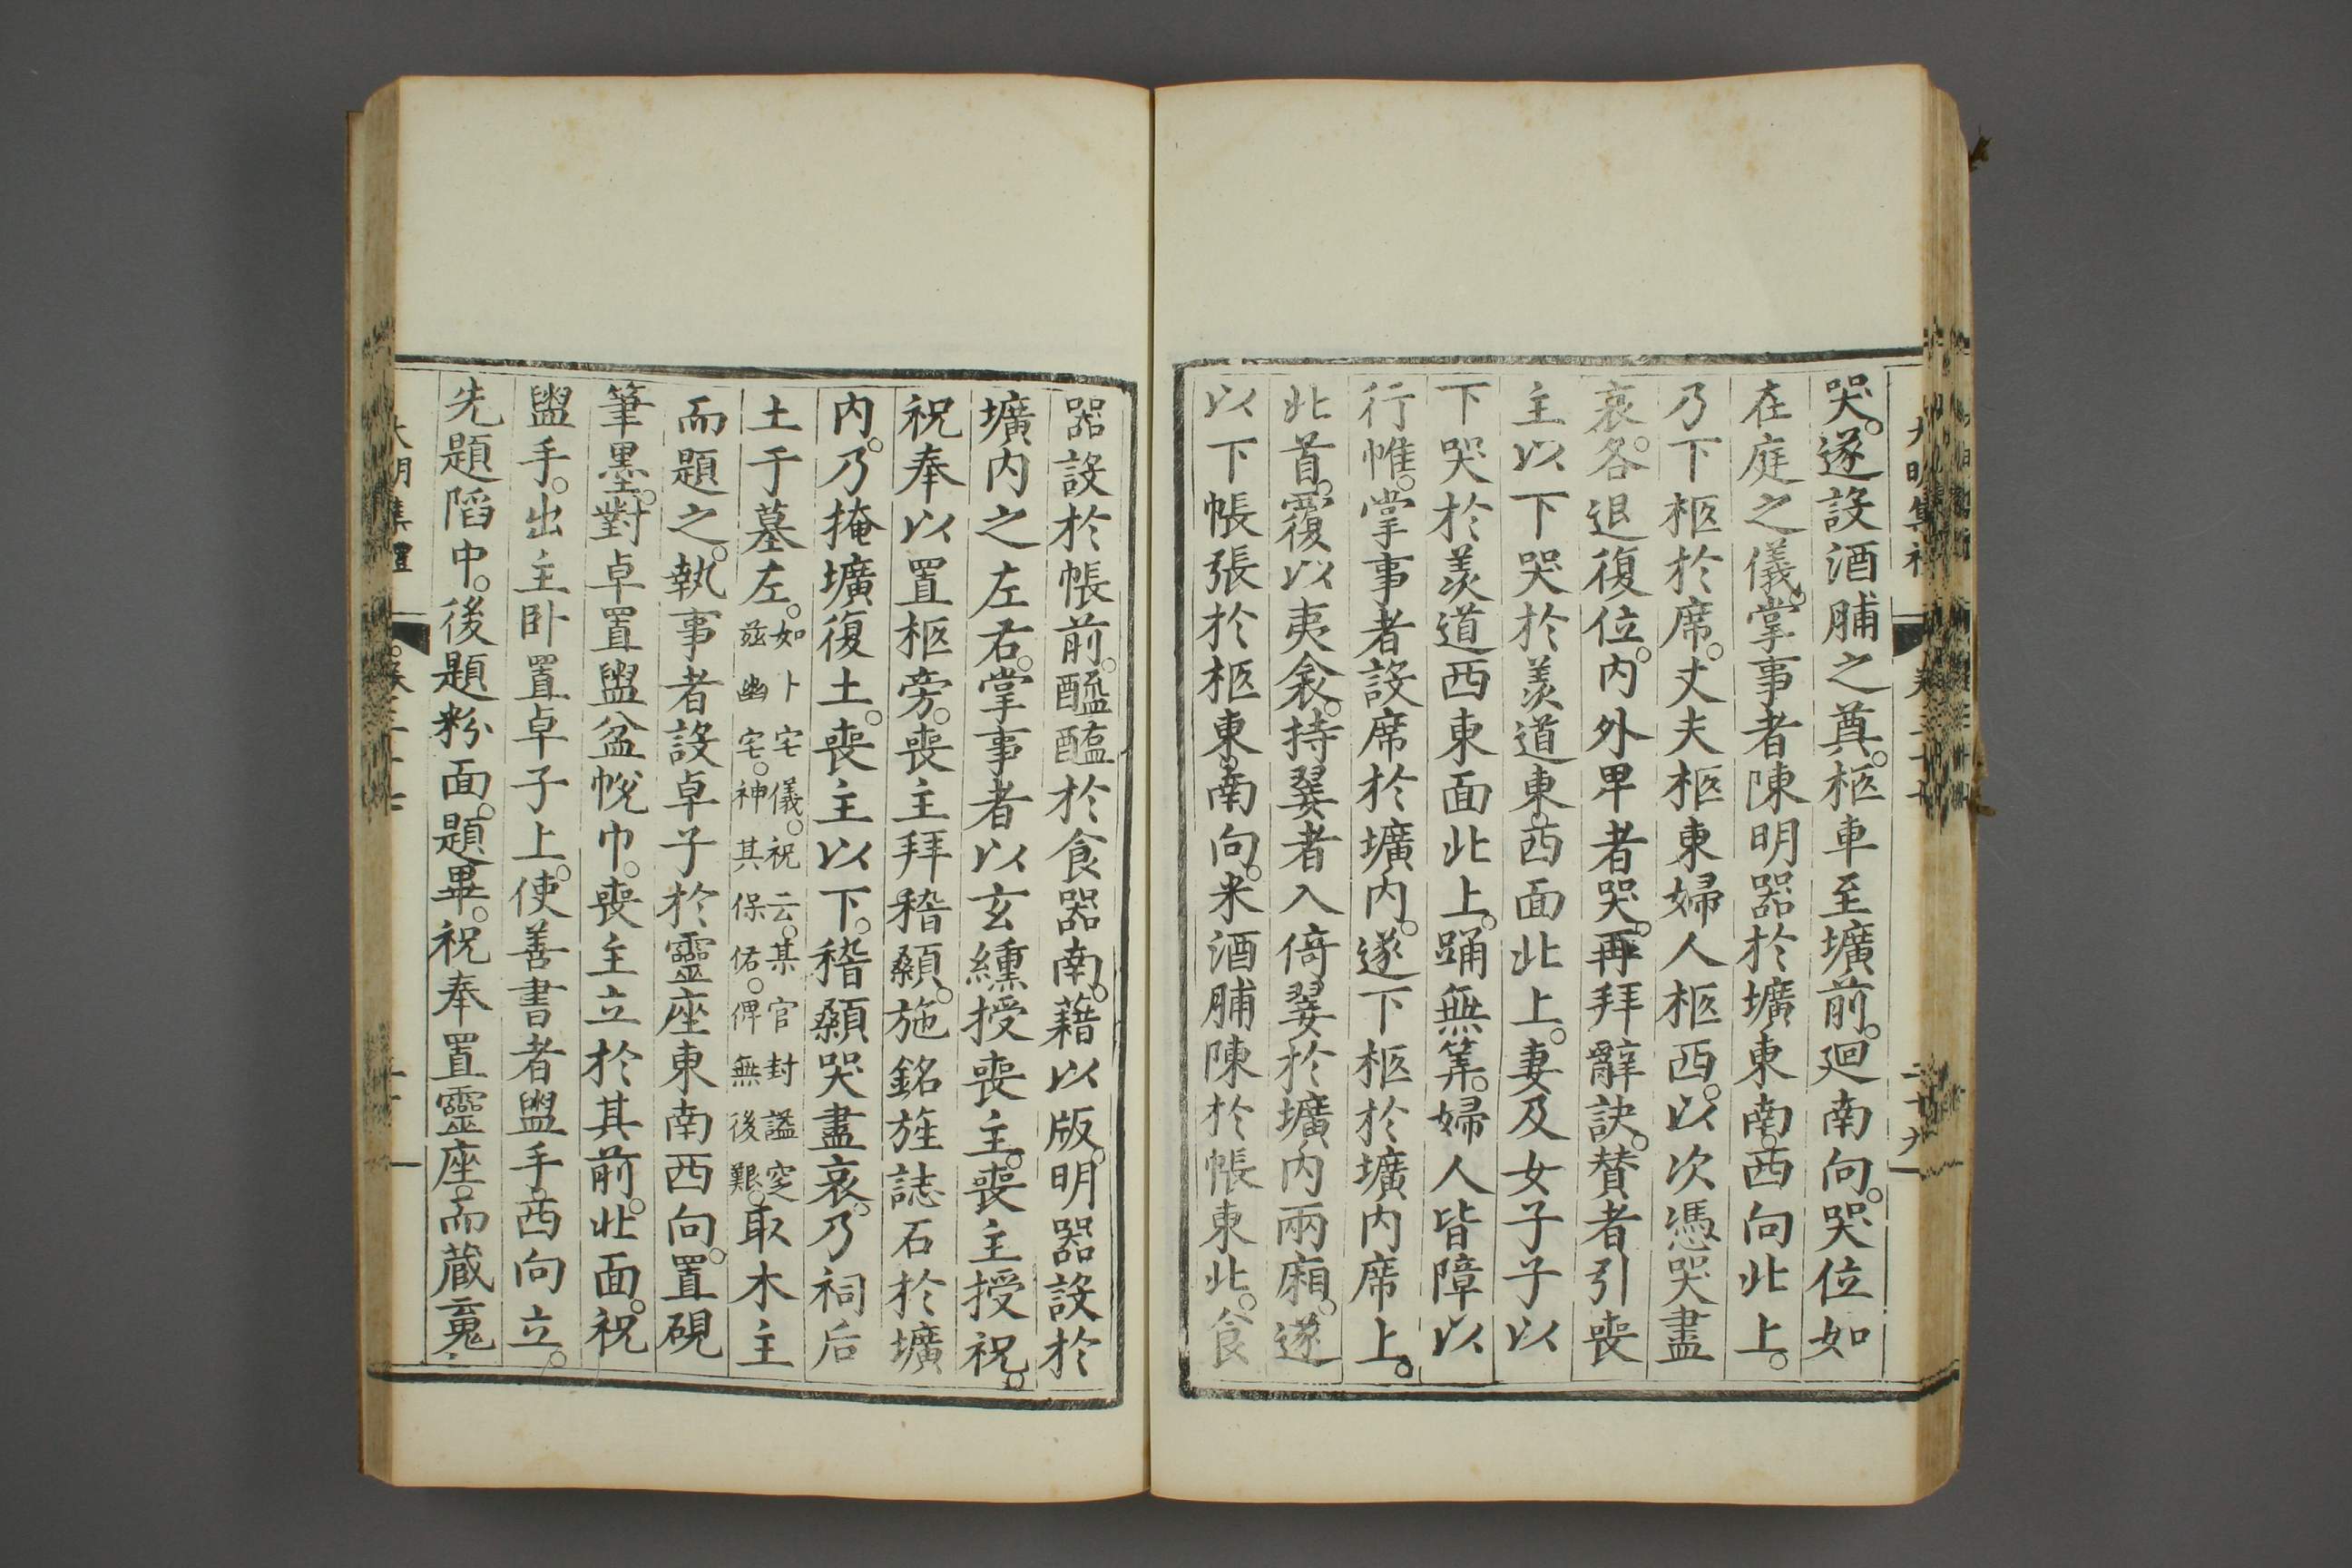 哭。遂設酒脯之奠。柩車至壙前。廻南向。哭位如
在庭之儀。掌事者陳明器於壙東南。西向北上。
乃下柩於席。丈夫柩東婦人柩西。以次憑哭盡
哀。各退復位。内外卑者哭。再拜辭訣。賛者引喪
主以下哭於羨道東。西面北上。妻及女子子以
下哭於羨道西東面北上。踊無筭。婦人皆障以
行帷。掌事者設席於壙内。遂下柩於壙内席上。
北首。覆以夷衾。持翣者入倚翣於壙内兩廂。遂
以下帳張於柩東。南向。米酒脯陳於帳東北。食
器設於帳前。醯醢於食器南。藉以版。明器設於
壙内之左右。掌事者以玄纁授喪主。喪主授祝。
祝奉以置柩旁。喪主拜稽顙。施銘旌誌石於壙
内。乃掩壙復土。喪主以下。稽顙哭盡哀。乃祠后
土于墓左。如卜宅儀。祝云。某官封謚窆
兹幽宅。神其保佑。俾無後艱。取木主
而題之。執事者設卓子於靈座東南西向。置硯
筆墨。對卓置盥盆帨巾。喪主立於其前。北面。祝
盥手。出主卧置卓子上。使善書者盥手。西向立。
先題䧟中。後題粉面。題畢。祝奉置靈座。而蔵䰟